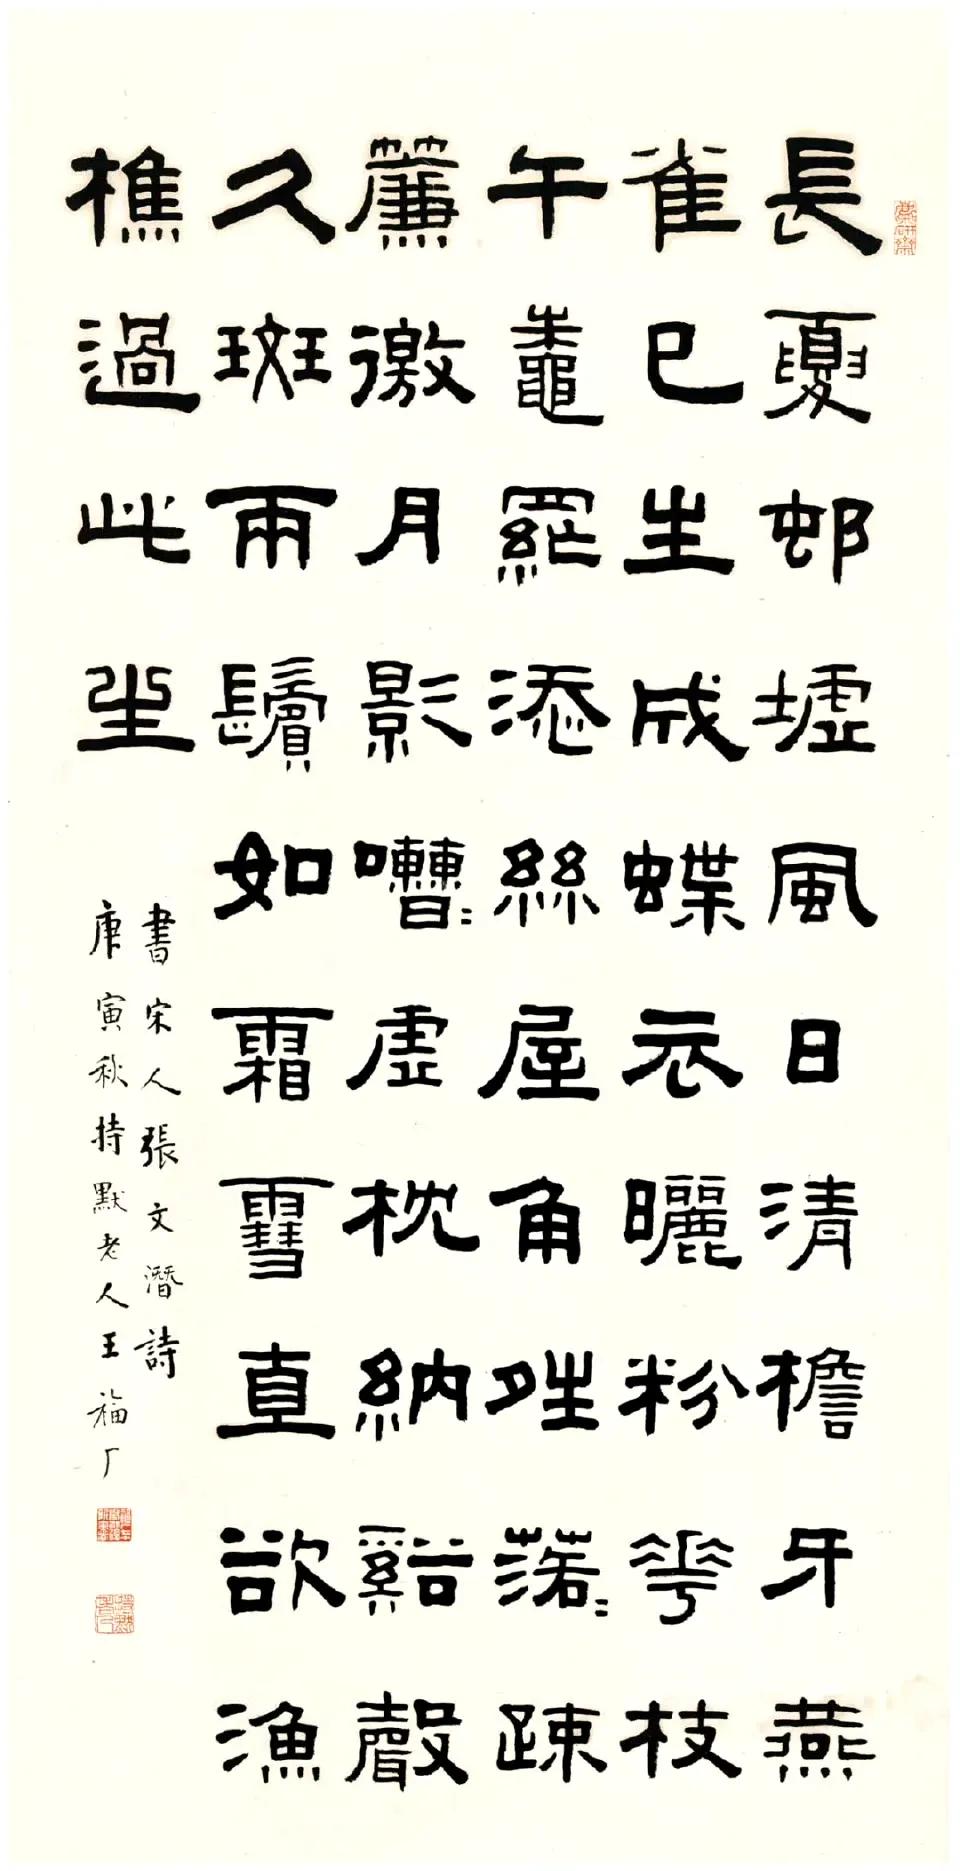 長夏邨墟風日清檐牙燕
雀已生成蝶衣曬粉花枝
午鼄網添絲屋角夝落=疎
簾徼月影嘈=虛枕納谿聲
久斑兩鬢如霜雪直欲漁
樵過此坐
書宋人張文潛詩
庚寅秋持默老人王福厂